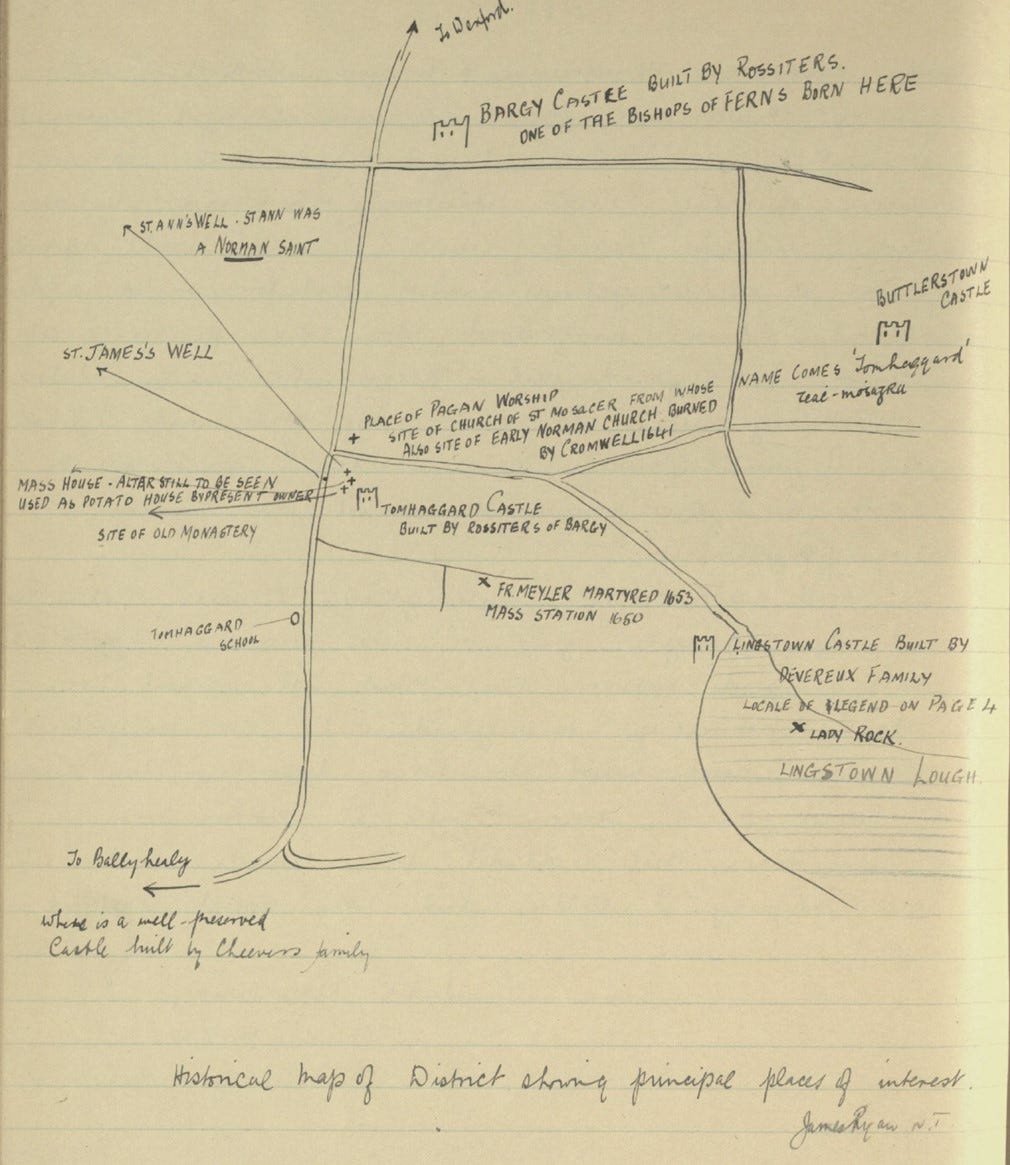 To Wexford.
BARGY CASTLE BUILT BY ROSSITERS.
ONE OF THE BISHOPS OF FERNS BORN HERE
ST. ANN'S WELL. ST ANN WAS
A NORMAN SAINT
BUTTLERSTOWN
CASTLE
ST. JAMES'S WELL
NAME COMES 'Tomhaggard'
teac-mosagra
PLACE OF PAGAN WORSHIP
SITE OF CHURCH OF ST MOSACER FROM WHOSE
ALSO SITE OF EARLY NORMAN CHURCH BURNED
BY CROMWELL 1641
MASS HOUSE - ALTER STILL TO BE SEEN
USED AS POTATO HOUSE BY PRESENT OWNER
SITE OF OLD MONASTERY
TOMHAGGARD CASTLE
BUILT BY ROSSITERS OF BARGY
FR. MEYLER MARTYRED 1653
MASS STATION 1650
TOMHAGGARD
SCHOOL
LINGSTOWN CASTLE BUILT BY
DEVEREUX FAMILY
LOCALE OF LEGEND ON PAGE 4
LADY ROCK.
LINGSTOWN LOUGH.
To Ballyhealy
where is a well-preserved
Castle built by Cheevers family
Historical Map of District showing principal places of interest.
James Ryan N.T.